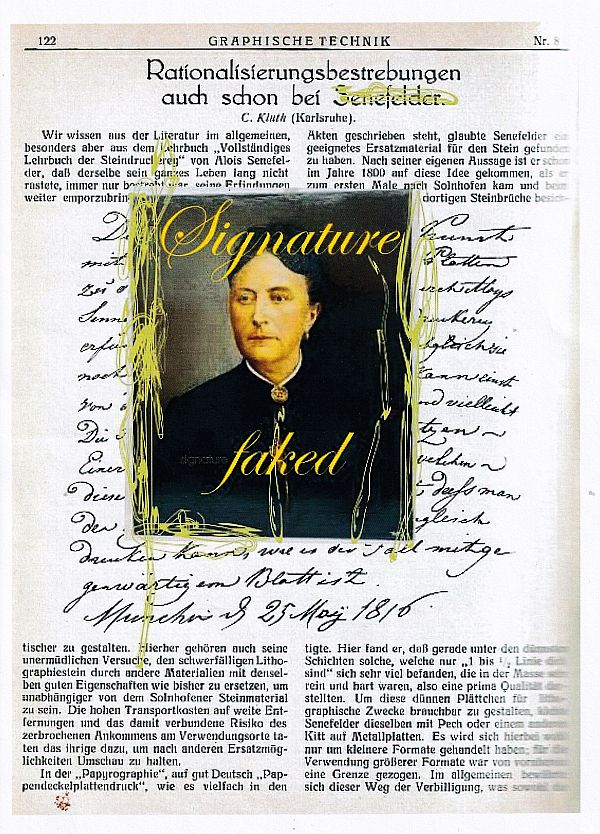 122 GRAPHISCHE TECHNIK Nr. 8
Rationalisierungsbestrebungen
auch schon bei Senefelder.
C. Kluth (Karlsruhe).
Wir wissen aus der Literatur im allgemeinen,
besonders aber aus dem Lehrbuch „Vollständiges
Lehrbuch der Steindruckerey" von Alois Senefel-
der, daß derselbe sein ganzes Leben lang nicht
rastete, immer nur bestrebt war, seine Erfindungen
weiter emporzubrin
Akten geschrieben steht, glaubte Senefelder ein
geeignetes Ersatzmaterial für den Stein gefunden
zu haben. Nach seiner eigenen Aussage ist er schon
im Jahre 1800 auf diese Idee gekommen, als er
zum ersten Male nach Solnhofen kam und beim
dortigen Steinbrüche besich-
Signature
faked
signature
Kunst
mit Platten
zu
Senne
erfu
noch kann einst
von d und vielleicht
Die
Einer welchen
Diese daß man
der gleich
drucken kann, wie es der Fall mit ge
genwärtigem Blatt ist.
München d 25 May 1816.
tischer zu gestalten. Hierher gehören auch seine
unermüdlichen Versuche, den schwerfälligen Litho-
graphiestein durch andere Materialien mit densel-
ben guten Eigenschaften wie bisher zu ersetzen, um
unabhängiger von dem Solnhofener Steinmaterial
zu sein. Die hohen Transportkosten auf weite Ent-
fernungen und das damit verbundene Risiko des
zerbrochenen Ankommens am Verwendungsorte ta-
ten das ihrige dazu, um nach anderen Ersatzmög-
lichkeiten Umschau zu halten.
In der „Papyrographie", auf gut Deutsch „Pap-
pendeckelplattendruck", wie es vielfach in den
tigte. Hier fand er, daß gerade unter den dünnsten
Schichten solche, welche nur „1 bis ½ Linie dick
sind" sich sehr viel befanden, die in der Masse sehr
rein und hart waren, also eine prima Qualität dar-
stellten. Um diese dünnen Plättchen für litho-
graphische Zwecke brauchbar zu gestalten, kittete
Senefelder dieselben mit Pech oder einem anderen
Kitt auf Metallplatten. Es wird sich hierbei wohl
nur um kleinere Formate gehandelt haben; für die
Verwendung größerer Formate war von vornherein
eine Grenze gezogen. Im allgemeinen bewährte
sich dieser Weg der Verbilligung, was sowohl die